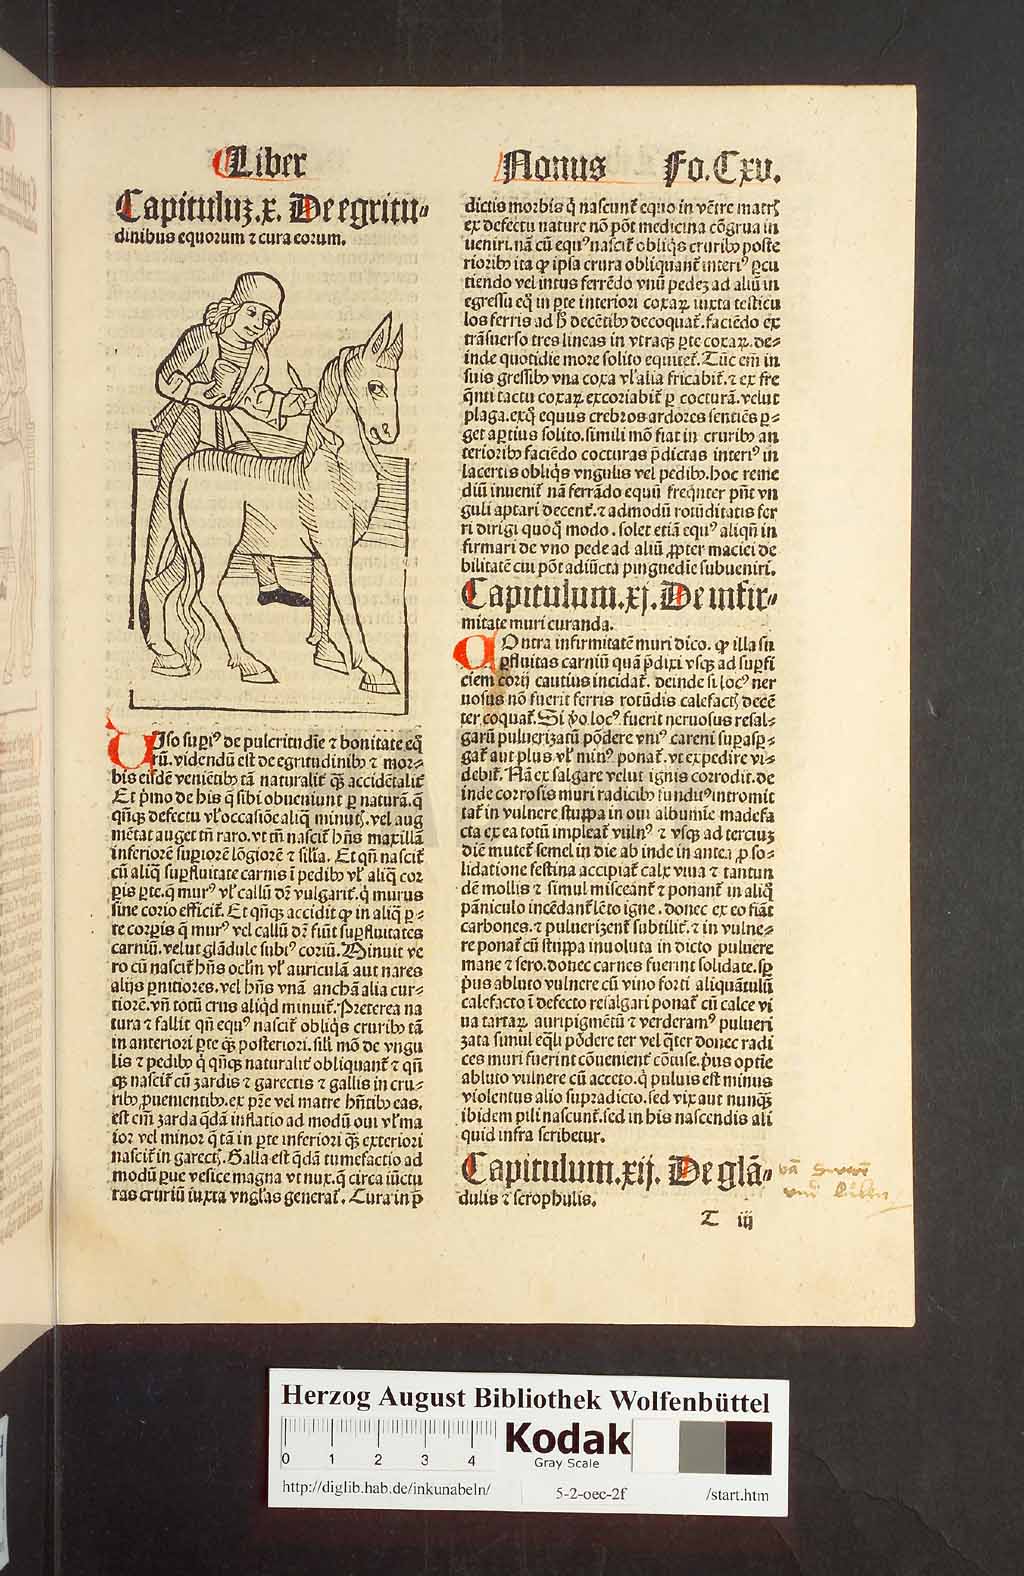 Liber Nonus Fo. Cxv.
Capituluʒ .x. De egritu-
dinibus equorum ⁊ cura eorum.
Uiso supiꝰ de pulcritudīe ⁊ bonitate eq̄
rū. videndū est de egritudinibꝫ ⁊ mor-
bis eisdē venientibꝫ tā naturalit̄ qꝫ accidētalit̄
Et p̄mo de his q̄ sibi obueniunt ꝑ naturā. q̄
qn̄qꝫ defectu vl̓ occasiōe aliq̄ minutꝭ. vel aug
mētat auget tn̄ raro. vt tn̄ nascit̄ hn̄s maxillā
inferiorē supiorē lōgiorē ⁊ sil̓ia. Et qn̄ nascit̄
cū aliq̄ supfluitate carnis ī pedibꝫ vl̓ aliq̄ cor
ꝑis ꝑte. q̄ murꝰ vl̓ callū dr̄ vulgarit̄. q̄ murus
sine corio efficit̄. Et qn̄qꝫ accidit ꝙ in aliq̄ ꝑ-
te corꝑis q̄ murꝰ vel callū dr̄ fiūt supfluitates
carniū. velut glādule subiꝰ coriū. Minuit ve
ro cū nascit̄ hn̄s ocl̓m vl̓ auriculā aut nares
alijs ꝑnitiores. vel hn̄s vnā anchā alia cur-
tiorē. vn̄ totū crus aliqd̄ minuit̄. Preterea na
tura ⁊ fallit qn̄ equꝰ nascit̄ obliqs cruribꝫ tā
in anteriori ꝑte qꝫ posteriori. sili mō de vngu
lis ⁊ pedibꝫ q̄ qn̄qꝫ naturalit̄ obliquant̄ ⁊ qn̄
qꝫ nascit̄ cū zardis ⁊ garectis ⁊ gallis in cru-
ribꝫ ꝓuenientibꝫ. ex pr̄e vel matre hn̄tibꝫ eas.
est em̄ zarda q̄dā inflatio ad modū oui vl̓ ma
ior vel minor q̄ tā in ꝑte inferiori qꝫ exteriori
nascit̄ in garectꝭ. Galla est q̄dā tumefactio ad
modū ꝑue vesice magna vt nux. q̄ circa iūctu
ras cruriū iuxta vngl̓as generat̄. Cura in p̄
dictis morbis q̄ nascunt̄ equo in vētre matrꝭ
ex defectu nature nō pōt medicina cōgrua in
ueniri. nā cū equꝰ nascit̄ obliqs cruribꝫ poste
rioribꝫ ita ꝙ ipsa crura obliquant̄ interiꝰ ꝑcu
tiendo vel intus ferrēdo vnū pedeʒ ad aliū in
egressu eq̄ in ꝑte interiori coxaꝝ iuxta testicu
los ferris ad h̓ decētibꝫ decoquat̄. faciēdo ex
trāsuerso tres lineas in vtraqꝫ ꝑte coxaꝝ. de-
inde quotidie more solito equitet̄. Tūc em̄ in
suis gressibꝫ vna coxa vl̓ alia fricabit̄. ⁊ ex fre
q̄nti tactu coxaꝝ excoriabit̄ ꝑ cocturā. velut
plaga. ex q̄ equus crebros ardores sentiēs ꝑ-
get aꝑtius solito. simili mō fiat in cruribꝫ an
terioribꝫ faciēdo cocturas p̄dictas interiꝰ in
lacertis obliqs vngulis vel pedibꝫ. hoc reme
diū inuenit̄ nā ferrādo equū freq̄nter pn̄t vn
guli aptari decent̄. ⁊ admodū rotūditatis fer
ri dirigi quoq̄ modo. solet etiā equꝰ aliqn̄ in
firmari de vno pede ad aliū ꝓpter maciei de
bilitatē cui pōt adiūcta pinguedīe subueniri.
Capitulum .xj. De infir-
mitate muri curanda.
COntra infirmitatē muri dico. ꝙ illa su
ꝑfluitas carniū quā p̄dixi vsqꝫ ad supfi
ciem corij cautius incidat̄. deinde si locꝰ ner
uosus nō fuerit ferris rotūdis calefactꝭ decē
ter coquat̄. Si ꝟo locꝰ fuerit neruosus resal-
garū puluerizatū pōdere vniꝰ careni supaspr-
gat̄ aut plus vl̓ minꝰ ponat̄. vt expedire vi-
debit̄. Nā ex salgare velut ignis corrodit. de
inde corrosis muri radicibꝫ funditꝰ intromit
tat̄ in vulnere stuppa in oui albumīe madefa
cta ex ea totū impleat̄ vulnꝰ ⁊ vsqꝫ ad tertiuʒ
diē mutet̄ semel in die ab inde in antea ꝓ so-
lidatione festina accipiat̄ calx viua ⁊ tantun
dē mellis ⁊ simul misceant̄ ⁊ ponant̄ in aliq̄
pāniculo incēdant̄ lēto igne. donec ex eo fiāt
carbones. ⁊ puluerizent̄ subtilit̄. ⁊ in vulne-
re ponat̄ cū stuppa inuoluta in dicto puluere
mane ⁊ sero. donec carnes fuerint solidate. sp̄
p̄us abluto vulnere cū vino forti aliquātulū
calefacto ī defecto resalgari ponat̄ cū calce vi
ua tartaꝝ auripigmētū ⁊ verderamꝰ pulueri
zata simul eq̄li pōdere ter vel q̄ter donec radi
ces muri fuerint cōuenient̄ cōtuse. p̄us optīe
abluto vulnere cū aceto. q̄ puluis est minus
violentus alio supradicto. sed vix aut nunqꝫ
ibidem pili nascunt̄. sed in his nascendis ali
quid infra scribetur.
Capitulum .xij. De glā-
dulis ⁊ scrophulis.
T iij
Herzog August Bibliothek Wolfenbüttel
0 1 2 3 4
Kodak
Gray Scale
http://diglib.hab.de/inkunabeln/ 5-2-oec-2f /start.htm